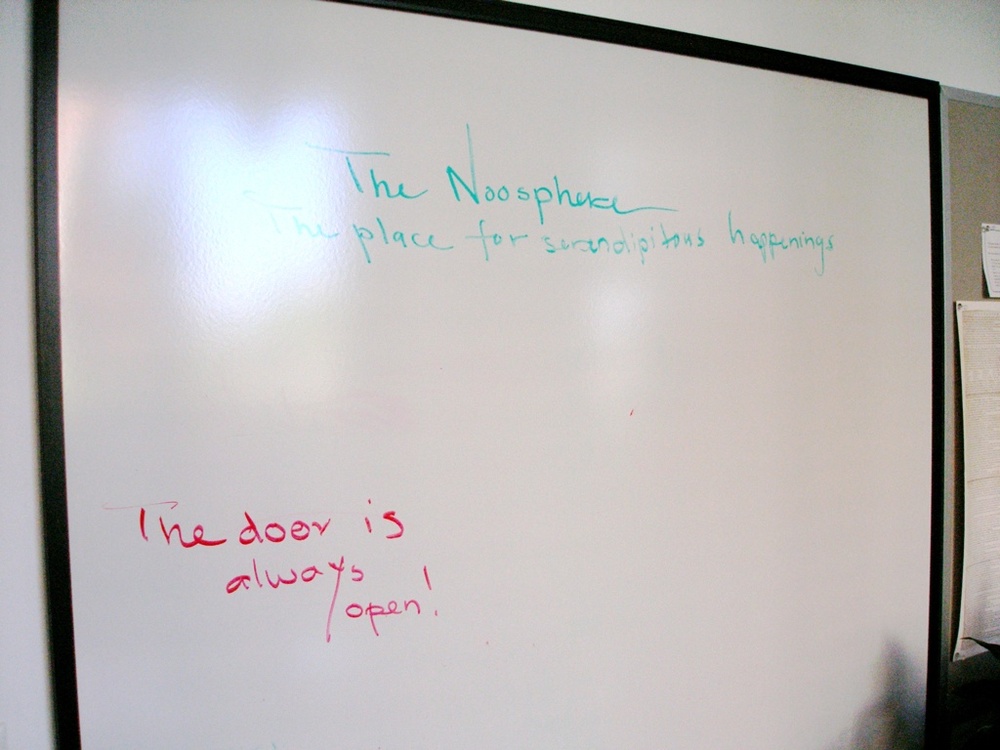 The Noosphere
The place for serendipitous happenings
The door is
always
open!